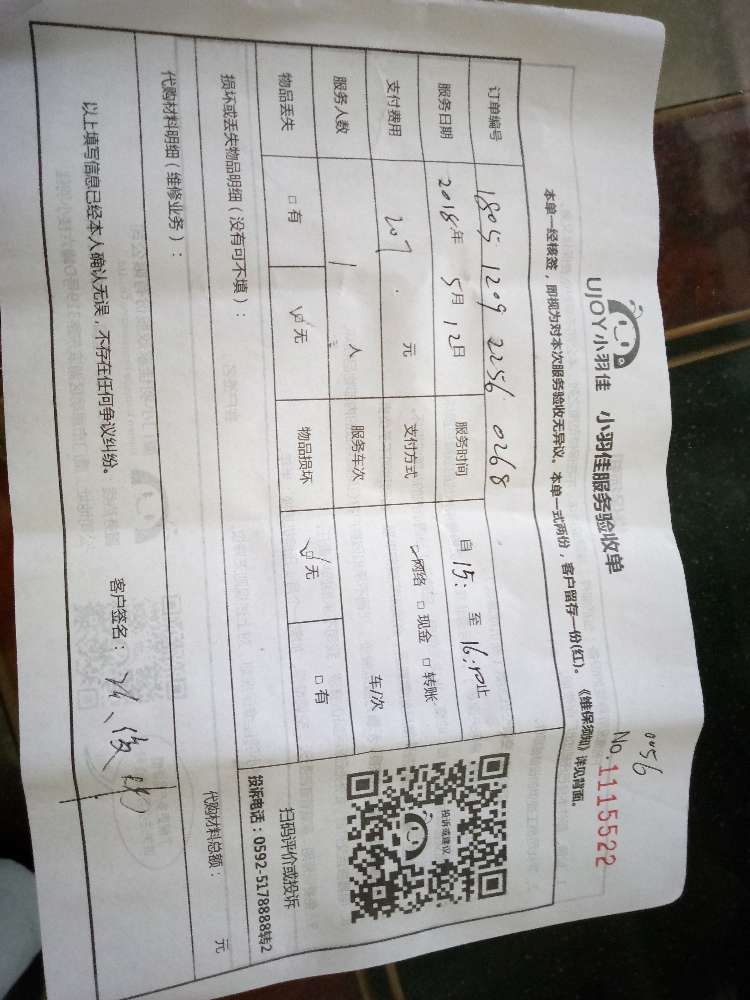 UJOY小羽佳 小羽佳服务验收单
0056
No.1115522
本单一经核签，即视为对本次服务验收无异议。本单一式两份，客户留存一份(红)。《维保须知》详见背面。
订单编号 1805 1209 2256 0268
服务日期 2018年 5月 12日 服务时间 自 15: 至 16:00止
支付费用 207 元 支付方式 ☑网络 □现金 □转账
服务人数 1 人 服务车次 车/次
物品丢失 □有 ☑无 物品损坏 ☑无 □有
投诉或建议
扫码评价或投诉
投诉电话：0592-5178888转2
损坏或丢失物品明细（没有可不填）：
代购材料明细（维修业务）： 代购材料总额： 元
以上填写信息已经本人确认无误，不存在任何争议纠纷。 客户签名：